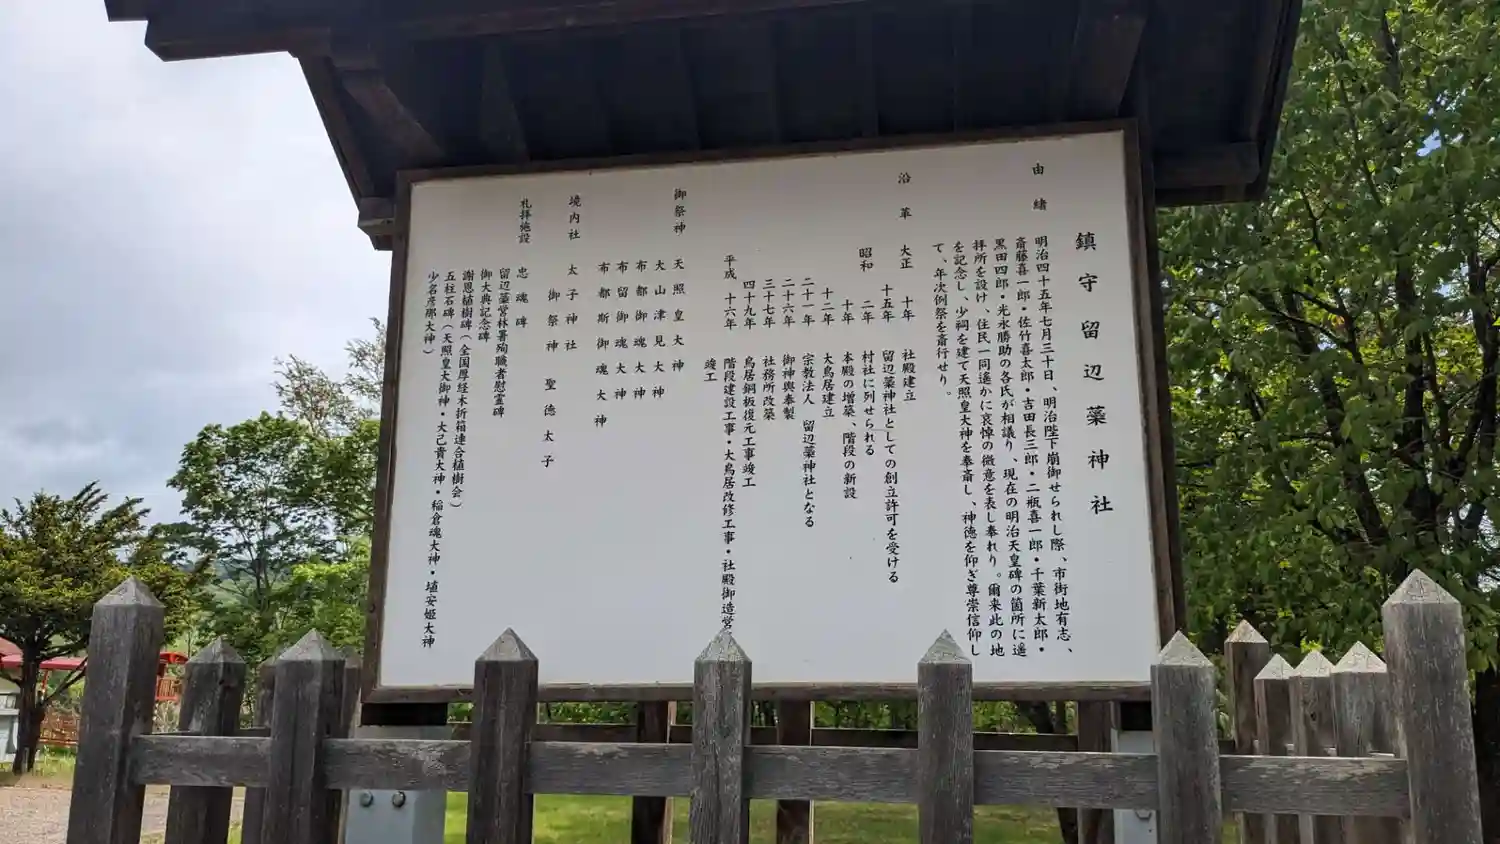 鎮守留辺蘂神社
由緒 明治四十五年七月三十日、明治陛下崩御せられし際、市街地有志、
斎藤喜一郎・佐竹喜太郎・吉田長三郎・二瓶喜一郎・千葉新太郎・
黒田四郎・光永勝助の各氏が相議り、現在の明治天皇碑の箇所に遥
拝所を設け、住民一同遥かに哀悼の微意を表し奉れり。爾来此の地
を記念し、少祠を建て天照皇大神を奉斎し、神徳を仰ぎ尊崇信仰し
て、年次例祭を斎行せり。
沿革 大正 十年 社殿建立
十五年 留辺蘂神社としての創立許可を受ける
昭和 二年 村社に列せられる
十年 本殿の増築、階段の新設
十二年 大鳥居建立
二十一年 宗教法人 留辺蘂神社となる
二十六年 御神輿奉製
三十七年 社務所改築
四十九年 鳥居銅板復元工事竣工
平成 十六年 階段建設工事・大鳥居改修工事・社殿御造営
竣工
御祭神 天照皇大神
大山津見大神
布都御魂大神
布留御魂大神
布都斯御魂大神
境内社 太子神社
御祭神 聖徳太子
礼拝施設 忠魂碑
留辺蘂営林署殉職者慰霊碑
御大典記念碑
謝恩植樹碑（全国厚経木折箱連合植樹会）
五柱石碑（天照皇大御神・大己貴大神・稲倉魂大神・埴安姫大神
少名彦那大神）